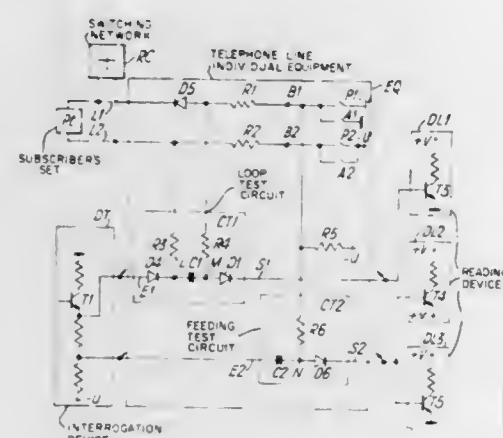 SWITCHING
NETWORK
RC
TELEPHONE LINE
INDIVIDUAL EQUIPMENT
EQ
D5 R1 B1 P1
L1 A1
L2 R2 B2 P2 -U
A2
SUBSCRIBER'S
SET
DL1
+V
T3
LOOP
TEST
CIRCUIT
DT CT1
R3 R4 R5 -U
DL2
+V
D4 C1 M D1 S1
E1
T1
CT2
READING
DEVICE
T4
+V
FEEDING
TEST
CIRCUIT
R6
DL3
+V
E2 C2 N D6 S2
-U
T5
INTERROGATION
DEVICE